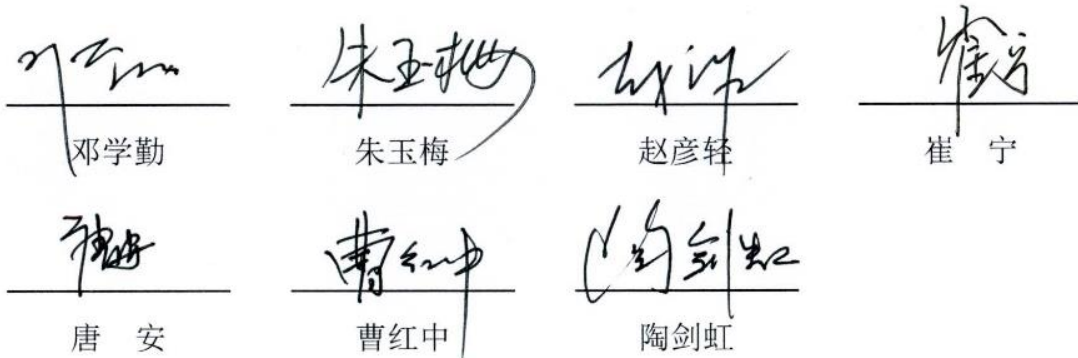 邓学勤 朱玉梅 赵彦轻 崔 宁
唐 安 曹红中 陶剑虹